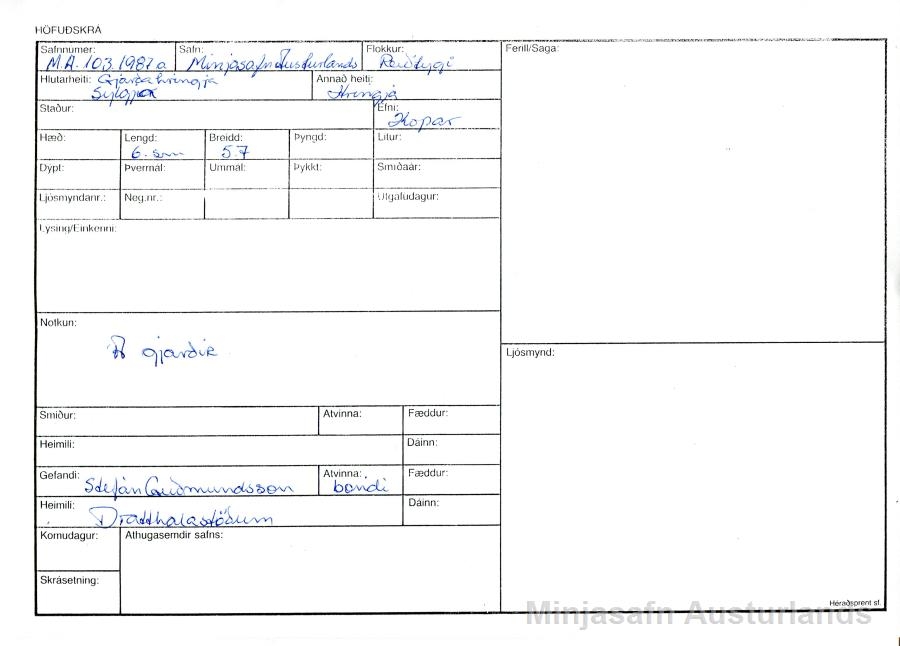 HÖFUÐSKRÁ
Safnnumer: Safn: Flokkur: Ferill/Saga:
M.A. 103.1982a Minjasafn Austurlands Reiðtygi
Hlutarheiti: Gjarðahringja Annað heiti:
Sylgjor Hringja
Staður: Efni:
Kopar
Hæð: Lengd: Breidd: Þyngd: Litur:
6. sm 5.7
Dýpt: Þvermál: Ummál: Þykkt: Smíðaár:
Ljósmyndanr.: Neg.nr.: Útgáfudagur:
Lýsing/Einkenni:
Notkun:
Á gjarðir
Ljósmynd:
Smiður: Atvinna: Fæddur:
Heimili: Dáinn:
Gefandi: Stefán Guðmundsson Atvinna: bóndi Fæddur:
Heimili: Dratthalastöðum Dáinn:
Komudagur: Athugasemdir safns:
Skrásetning:
Héraðsprent sf.
Minjasafn Austurlands